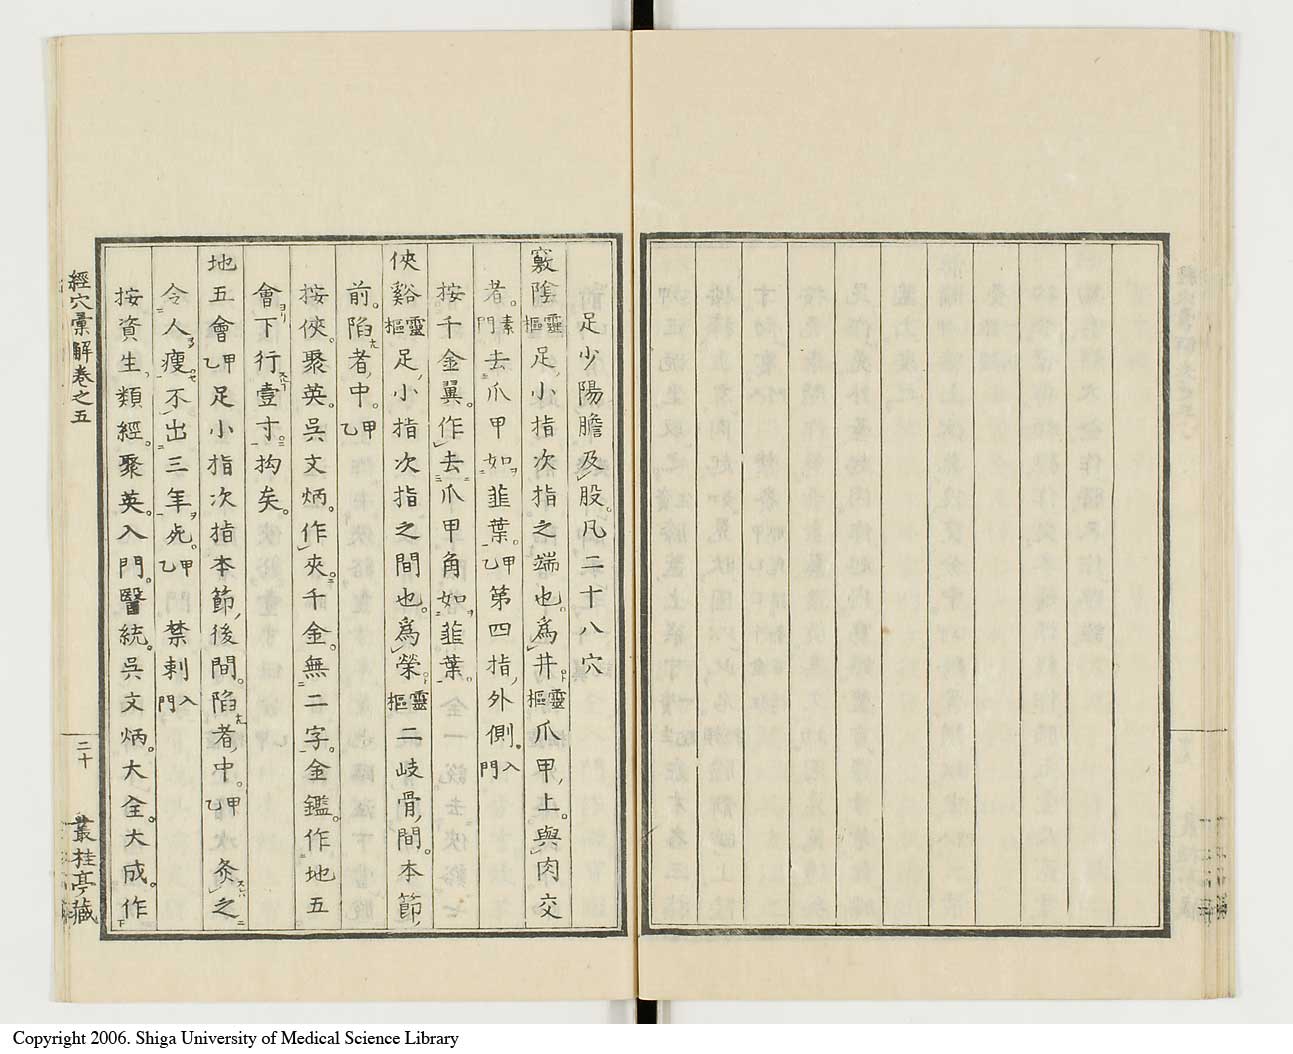 足少陽膽及股凡二十八穴
竅陰靈樞足小指次指之端也爲井靈樞爪甲上與肉交
者素門去爪甲如韮葉甲乙第四指外側入門
按千金翼作去爪甲角如韮葉
俠谿靈樞足小指次指之間也爲滎靈樞二岐骨間本節
前陷者中甲乙
按俠聚英吳文炳作夾千金無二字金鑑作地五
會下行壹寸拘矣
地五會甲乙足小指次指本節後間陷者中甲乙灸之
令人瘦不出三年死甲乙禁刺入門
按資生類經聚英入門醫統吳文炳大全大成作
經穴彙解卷之五
二十
叢桂亭藏
Copyright 2006. Shiga University of Medical Science Library